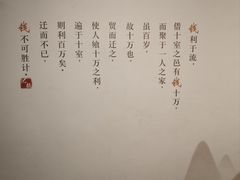 钱利于流，
借十室之邑有钱十万，
而聚于一人之家，
虽百岁，
故十万也，
贸而迁之，
使人飨十万之利，
遍于十室，
则利百万矣，
迁而不已，
钱不可胜计，